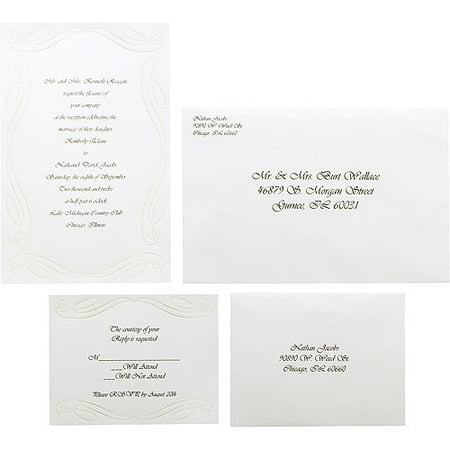 Mr. and Mrs. Kenneth Reagan
request the pleasure of
your company
at the reception celebrating the
marriage of their daughter
Kimberly Elaine
to
Nathaniel David Jacoby
Saturday, the eighth of September
Two thousand and twelve
at half past 6 o'clock
Lake Michigan Country Club
Chicago, Illinois
Nathan Jacobs
90890 W. Ward St.
Chicago, IL 60660
Mr. & Mrs. Burt Wallace
46879 S. Morgan Street
Gurnee, IL 60031
The courtesy of your
Reply is requested
M____________________
___Will Attend
___Will Not Attend
Please RSVP by August 20th
Nathan Jacobs
90890 W. Ward St.
Chicago, IL 60660